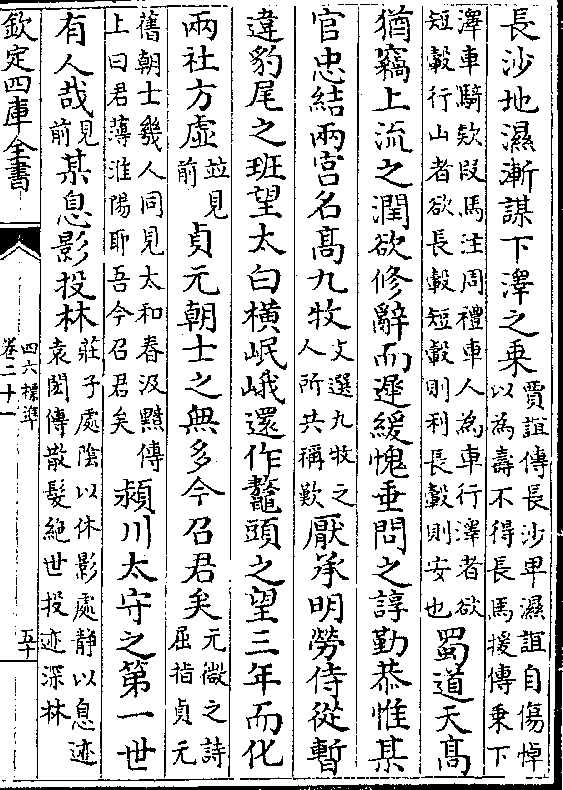 長沙地濕漸謀下澤之乗賈誼傳長沙卑濕誼自傷悼以為壽不得長馬援傳乗下
澤車騎欵段馬注周禮車人為車行澤者欲短轂行山者欲長轂短轂則利長轂則安也蜀道天髙
猶竊上流之潤欲修辭而遲緩愧垂問之諄勤恭惟某
官忠結兩宫名髙九牧文選九牧之人所共稱歎厭承明勞侍從暫
違豹尾之班望太白橫岷峨還作鼇頭之望三年而化
兩社方虛並見前貞元朝士之無多今召君矣元微之詩屈指貞元
舊朝士幾人同見太和春汲黯傳上曰君薄淮陽耶吾今召君矣潁川太守之第一世
有人哉見前某息影投林莊子處陰以休影處静以息迹袁閎傳散髮絕世投迹深林
欽定四庫全書
四六標準
卷二十一
五十